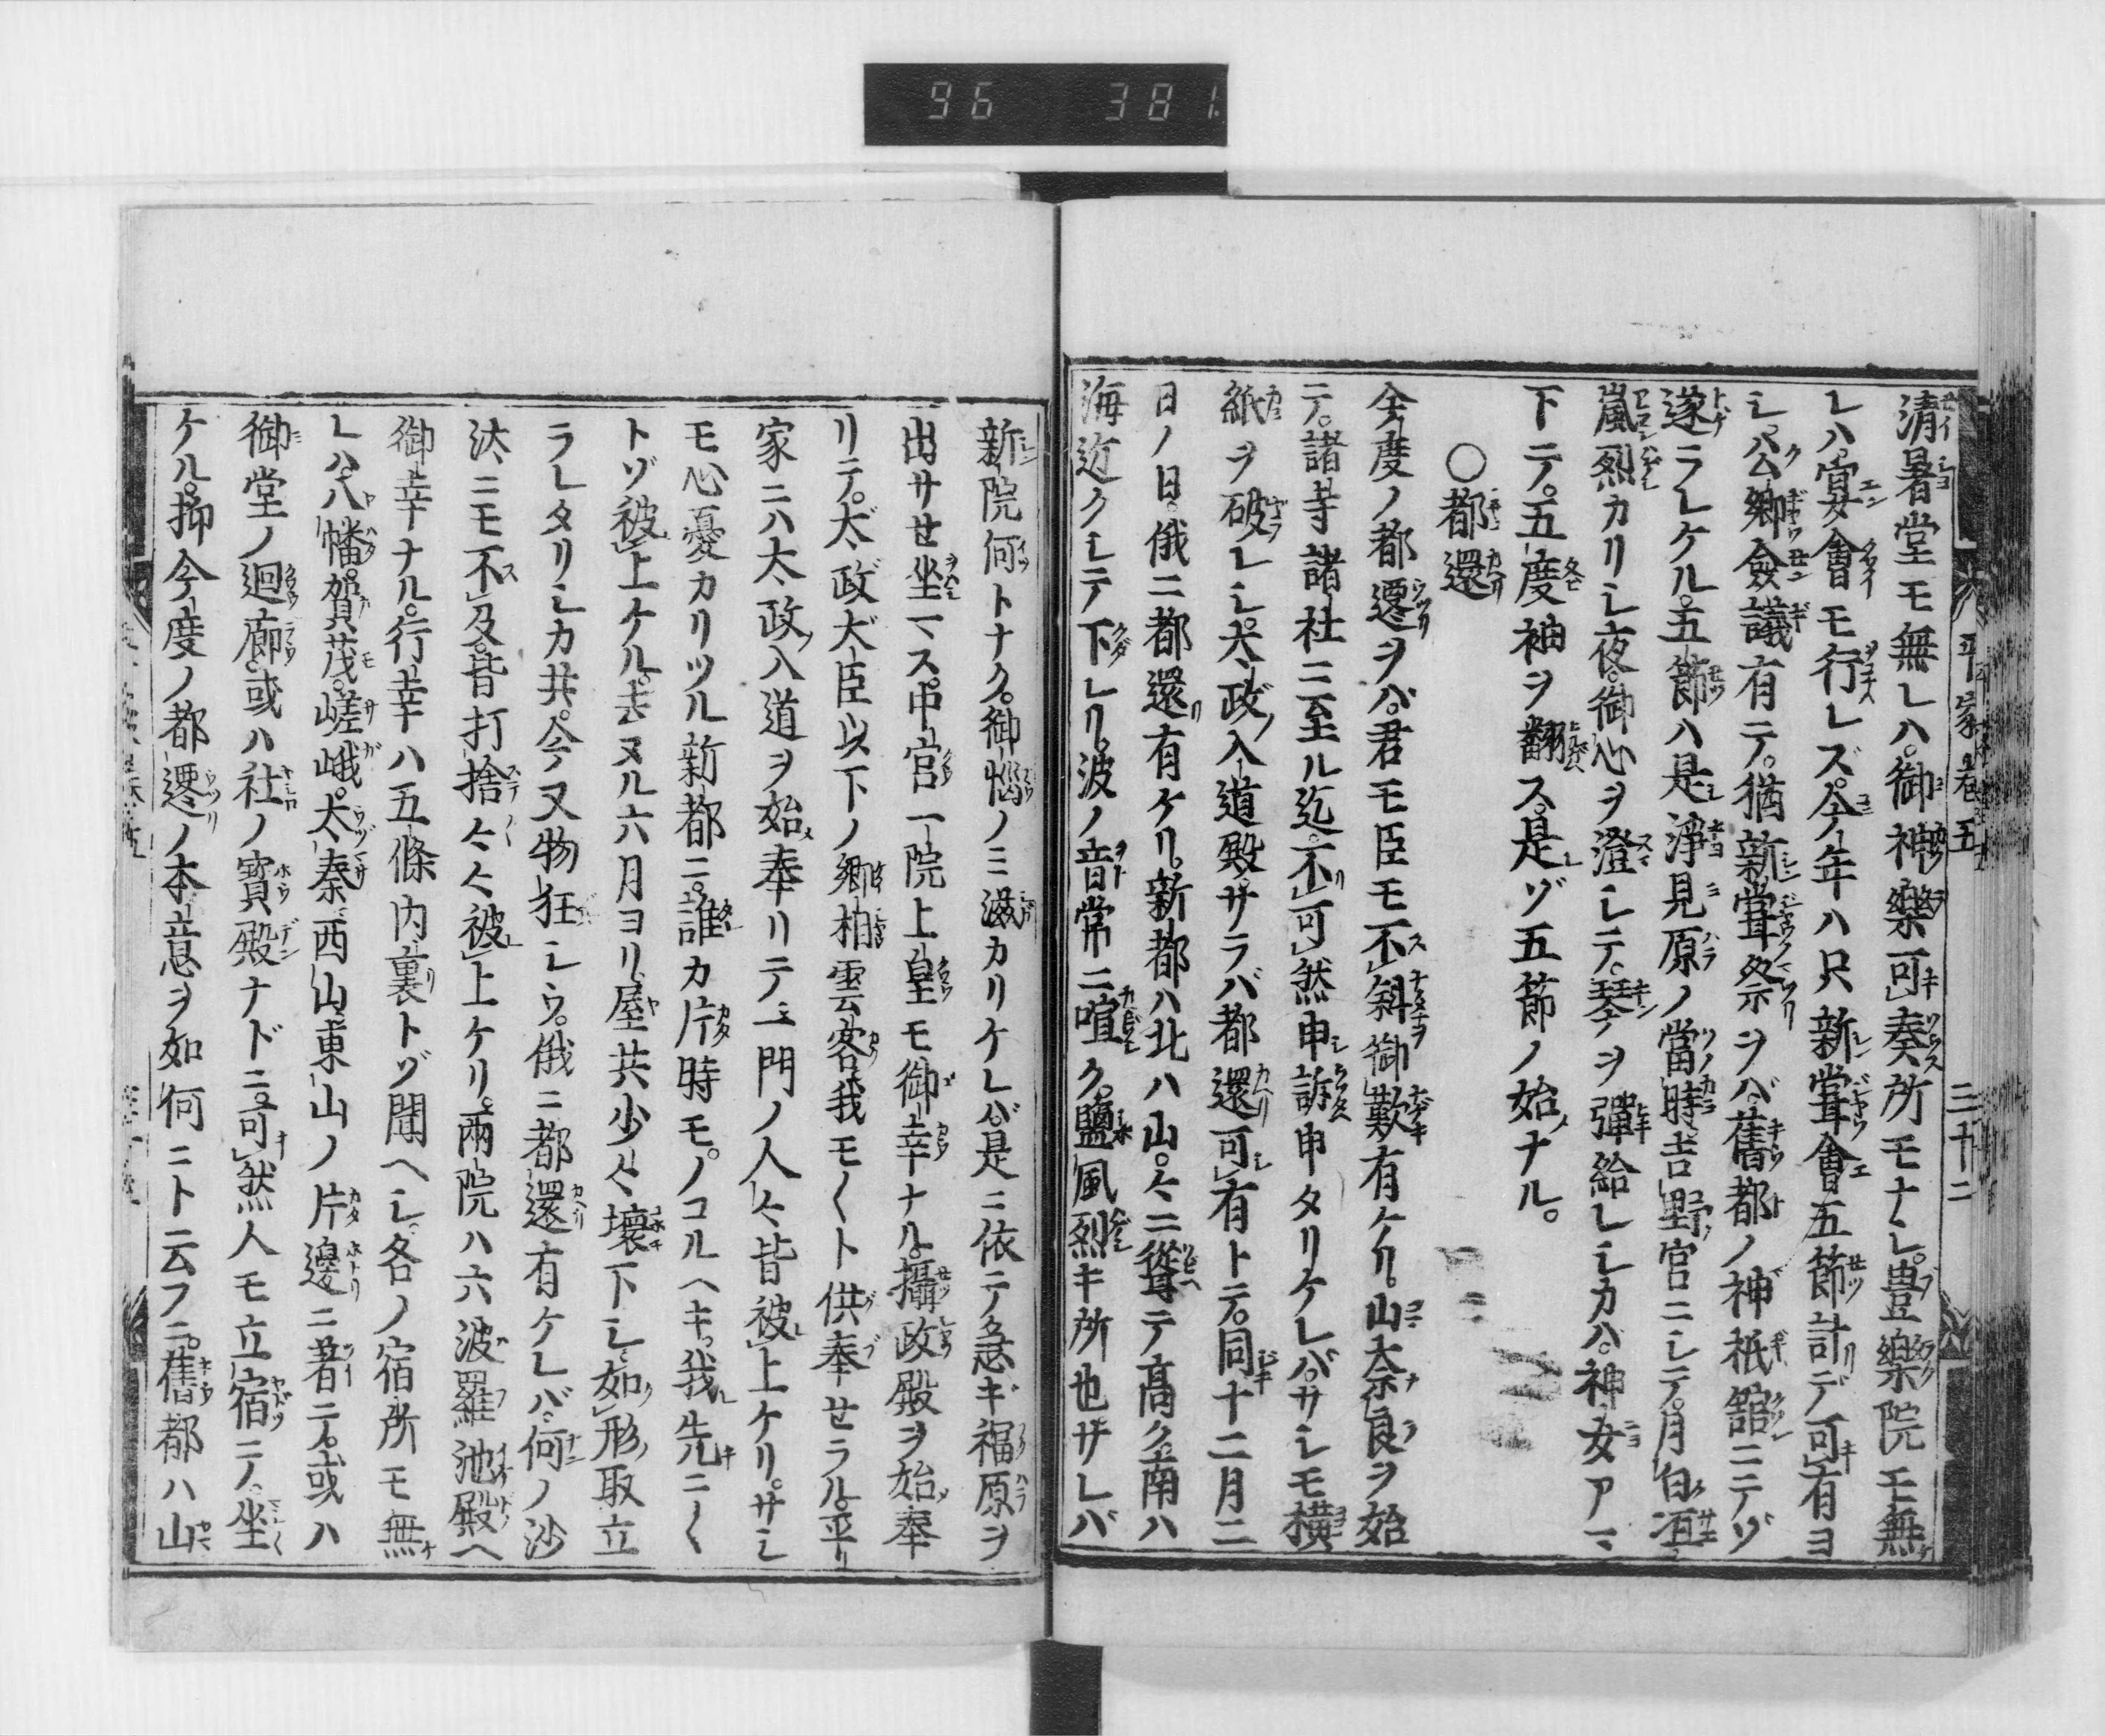 96 381
平家巻五
三十二
清暑堂モ無レハ。御神樂可奏所モナシ。豊樂院モ無
レハ。宴會モ行レズ。今年ハ只新甞會五節計デ可有ヨ
シ。公卿僉議有テ。猶新甞祭ヲバ。舊都ノ神祇舘ニテゾ
遂ラレケル。五節ハ是淨見原ノ當時。吉野宮ニシテ。月白冱
嵐烈カリシ夜。御心ヲ澄シテ。琴ヲ彈給レシカハ。神女アマ
下テ。五度袖ヲ翻ス。是ゾ五節ノ始ナル。
〇都還
今度ノ都遷ヲバ。君モ臣モ不斜御歎有ケリ。山奈良ヲ始
テ。諸寺諸社ニ至ル迄。不可然申訴申タリケレバ。サシモ横
紙ヲ破レシ。大政入道殿。サラバ都還可有トテ。同十二月二
日ノ日。俄ニ都還有ケリ。新都ハ北ハ山々ニ聳テ高ク。南ハ
海近クシテ下レリ。波ノ音常ニ喧ク。鹽風烈キ所也。サレバ
新院何トナク。御惱ノミ滋カリケレバ。是ニ依テ急ギ福原ヲ
出サセ坐マス。中宮一院上皇モ御幸ナル。攝政殿ヲ始奉
リテ。太政大臣以下ノ卿相雲客。我モ〱ト供奉セラル。平
家ニハ大政入道ヲ始奉リテ。一門ノ人々。皆被上ケリ。サシ
モ心憂カリツル新都ニ。誰カ片時モ。ノコルヘキ。我先ニ〱
トゾ被上ケル。去ヌル六月ヨリ。屋共少々壞下シ。如形取立
ラレタリシカ共。今又物狂シウ。俄ニ都還有ケレバ。何ノ沙
汰ニモ不及。皆打捨々々被上ケリ。兩院ハ六波羅池殿ヘ
御幸ナル。行幸ハ五條内裏トゾ聞ヘシ。各ノ宿所モ無
レハ。八幡。賀茂。嵯峨。太秦。西山東山ノ片邊ニ著テ。或ハ
御堂ノ迴廊。或ハ社ノ寳殿ナドニ。可然人モ立宿テ。坐
ケル。抑今度ノ都遷ノ本意ヲ如何ニト云フニ。舊都ハ山